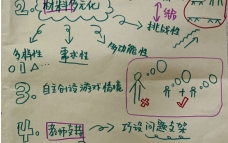 缩
2. 材料多元化
挑战性
多样性 需求性 多功能性
3. 自主创设游戏情境
4. 教师支持 → 巧设问题支架